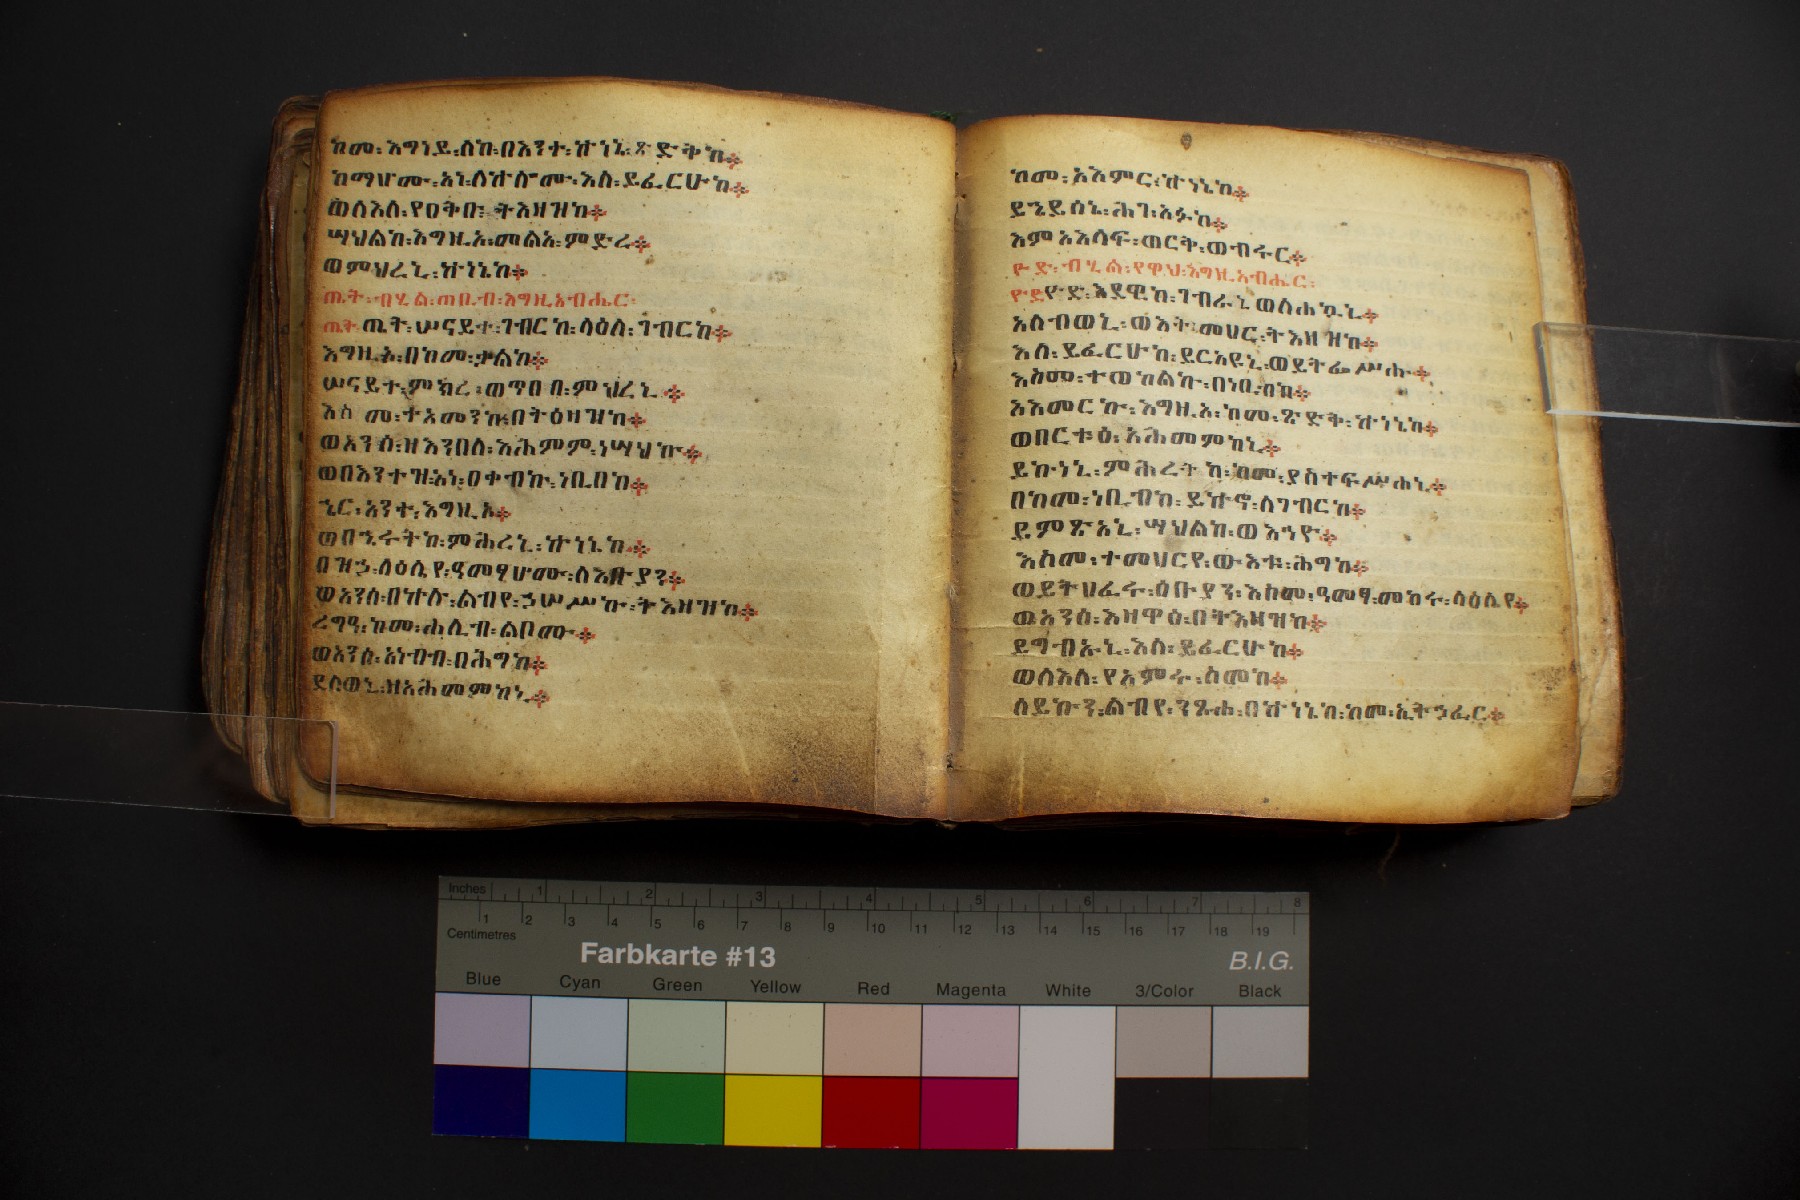 ከመ፡ እግነይ፡ ለከ፡ በእንተ፡ ኵነኔ፡ ጽድቅከ።
ከማሆሙ፡ አነ፡ ለኵሎሙ፡ እለ፡ ይፈርሁከ።
ወለእለ፡ የዐቅቡ፡ ትእዛዝከ።
ሣህልከ፡ እግዚአ፡ መልአ፡ ምድረ።
ወምህረኒ፡ ኵነኔከ።
ጤት፡ ብሂል፡ ጠቢብ፡ እግዚአብሔር፡
ጤት፡ ጤት፡ ሠናይተ፡ ገብርከ፡ ላዕለ፡ ገብርከ።
እግዚኦ፡ በከመ፡ ቃልከ።
ሠናይተ፡ ምክረ፡ ወጥበበ፡ ምህረኒ።
እስመ፡ ተአመንኩ፡ በትዕዛዝከ።
ወአንሰ፡ ዘእንበለ፡ እሕምም፡ ነሣህኩ።
ወበእንተዝ፡ አነ፡ ዐቀብኩ፡ ነቢበከ።
ኄር፡ አንተ፡ እግዚኦ።
ወበኂሩትከ፡ ምሕረኒ፡ ኵነኔከ።
በዝኃ፡ ላዕሌየ፡ ዓመፃሆሙ፡ ለእኩያን።
ወአንሰ፡ በኵሉ፡ ልብየ፡ ኃሠሥኩ፡ ትእዛዝከ።
ረግዓ፡ ከመ፡ ሐሊብ፡ ልቦሙ።
ወአንሰ፡ አነብብ፡ በሕግከ።
ደለወኒ፡ ዘአሕመምከኒ።
ከመ፡ አእምር፡ ኵነኔከ።
ይኄይሰኒ፡ ሕገ፡ አፉከ።
እምአእላፍ፡ ወርቅ፡ ወብሩር።
ዮድ፡ ብሂል፡ የዋህ፡ እግዚአብሔር፡
ዮድ ዮድ፡ እደዊከ፡ ገብራኒ ወለሐኳኒ።
አለብወኒ፡ ወእትመሀር፡ ትእዛዝከ።
እለ፡ ይፈርሁከ፡ ይርአዩኒ፡ ወይትፌሥሑ።
እስመ፡ ተወከልኩ፡ በነቢብከ።
አእመርኩ፡ እግዚአ፡ ከመ፡ ጽድቅ፡ ኵነኔከ።
ወበርቱዕ፡ አሕመምከኒ።
ይኩነኒ፡ ምሕረትከ፡ ከመ፡ ያስተፍሥሐኒ።
በከመ፡ ነቢብከ፡ ይኵኖ፡ ለገብርከ።
ይምጽአኒ፡ ሣህልከ፡ ወእኅዮ።
እስመ፡ ተመህርየ፡ ውእቱ፡ ሕግከ።
ወይትሀፈሩ፡ ዕቡያን፡ እስመ፡ ዓመፃ፡ መከሩ፡ ላዕሌየ።
ወአንሰ፡ እዛዋዕ፡ በትእዛዝከ።
ይግብኡኒ፡ እለ፡ ይፈርሁከ።
ወለእለ፡ የአምሩ፡ ስመከ።
ለይኩን፡ ልብየ፡ ንጹሐ፡ በኵነኔከ፡ ከመ፡ ኢትኃፈር።
Inches 1 2 3 4 5 6 7 8
1 2 3 4 5 6 7 8 9 10 11 12 13 14 15 16 17 18 19
Centimetres
Farbkarte #13
B.I.G.
Blue Cyan Green Yellow Red Magenta White 3/Color Black